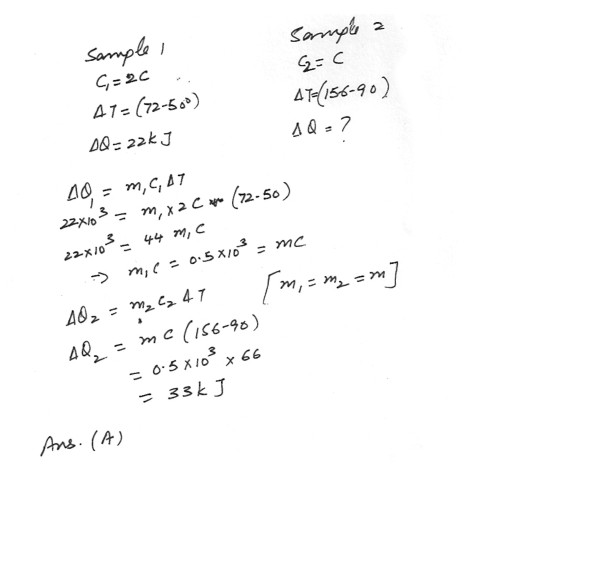 Sample 1
C₁ = 2C
ΔT = (72-50⁰)
ΔQ = 22kJ
Sample 2
C₂ = C
ΔT=(156-90)
ΔQ = ?
ΔQ₁ = m₁C₁ΔT
22×10³ = m₁×2C (72-50)
22×10³ = 44 m₁C
⇒ m₁C = 0.5×10³ = mC
ΔQ₂ = m₂C₂ΔT [m₁ = m₂ = m]
ΔQ₂ = mC(156-90)
= 0.5×10³ × 66
= 33kJ
Ans. (A)